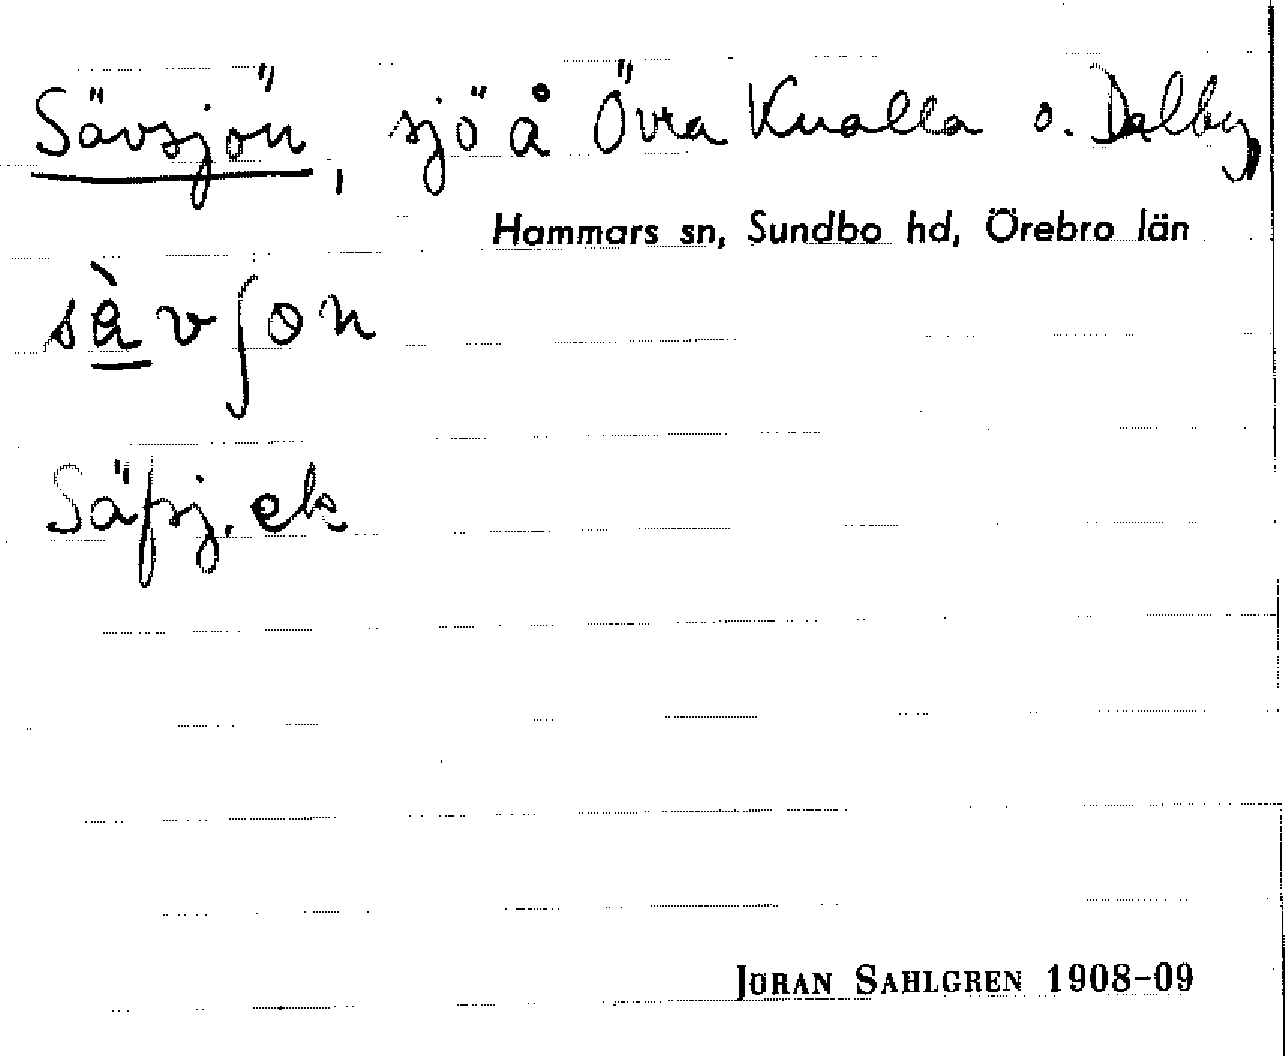 Sävsjön, sjö å Övra Knalla o. Dalby,
Hammars sn, Sundbo hd, Örebro län
sàvʃɵn
Säfsj. ek
JÖRAN SAHLGREN 1908-09